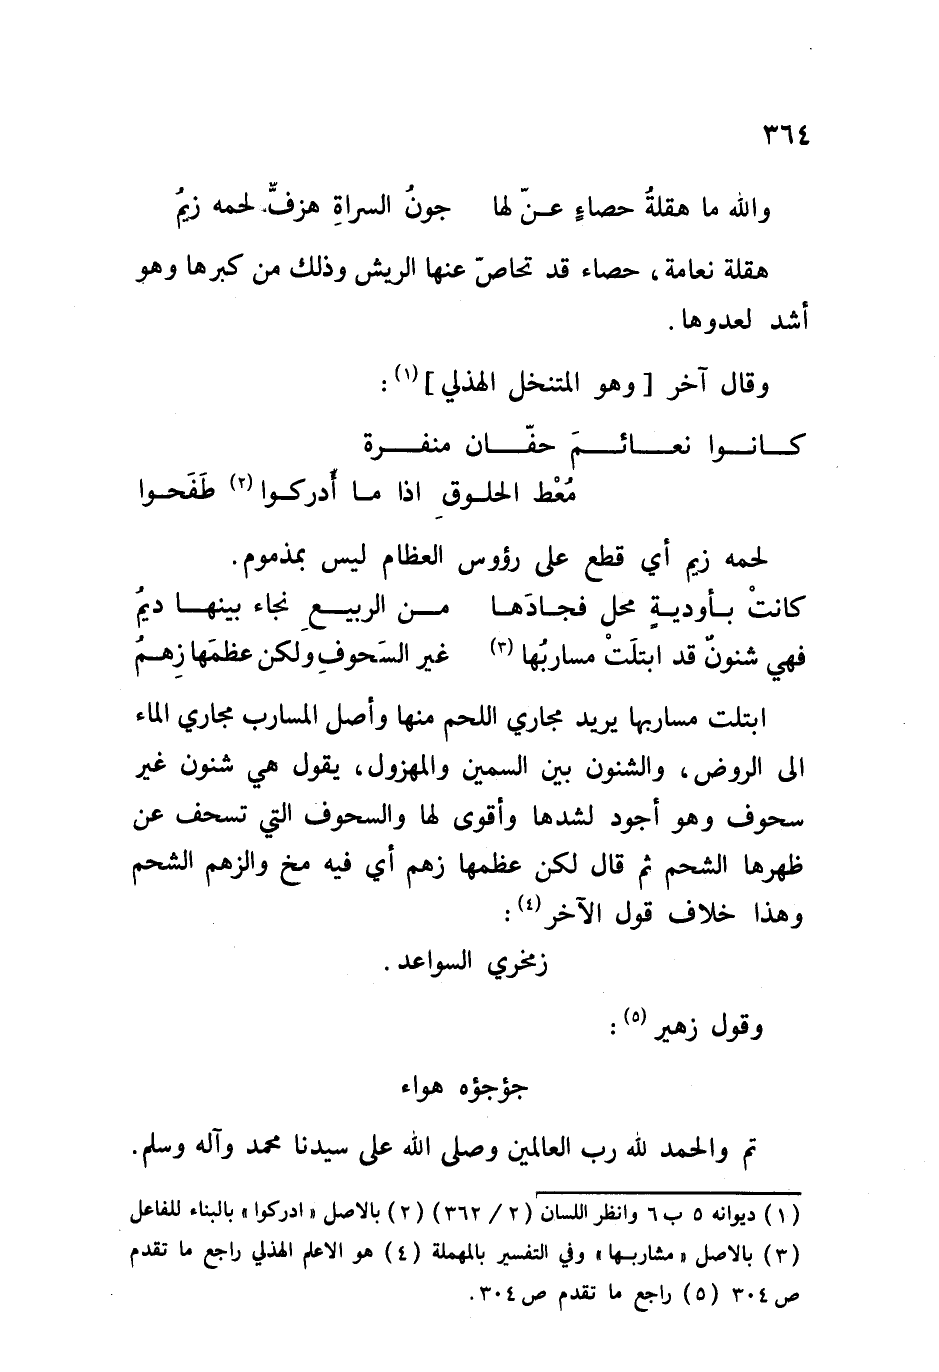 ٣٦٤
والله ما هقلةُ حصاءٍ عــنّ لها جونُ السراةِ هزفٌّ لحمه زيمُ
هقلة نعامة، حصاء قد تحاصّ عنها الريش وذلك من كبرها وهو
أشد لعدوها.
وقال آخر [ وهو المتنخل الهذلي ] (١) :
كـانـوا نعـائـمَ حفّـان منفـرة
مُعْط الحلـوقِ اذا مـا أُدركـوا (٢) طَفَحـوا
لحمه زيم أي قطع على رؤوس العظام ليس بمذموم.
كانتْ بـأوديـةٍ محل فجـادَهـا مـن الربيـعِ نجاء بينهـا ديمُ
فهي شنونٌ قد ابتلَتْ مساربُها (٣) غير السَحوفِ ولكن عظمَها زِهـمُ
ابتلت مساربها يريد مجاري اللحم منها وأصل المسارب مجاري الماء
الى الروض، والشنون بين السمين والمهزول، يقول هي شنون غير
سحوف وهو أجود لشدها وأقوى لها والسحوف التي تسحف عن
ظهرها الشحم ثم قال لكن عظمها زهم أي فيه مخ والزهم الشحم
وهذا خلاف قول الآخر (٤) :
زمخري السواعد.
وقول زهير (٥) :
جؤجؤه هواء
تم والحمد لله رب العالمين وصلى الله على سيدنا محمد وآله وسلم.
(١) ديوانه ٥ ب ٦ وانظر اللسان (٢ / ٣٦٢) (٢) بالاصل « ادركوا » بالبناء للفاعل
(٣) بالاصل « مشاربـها » وفي التفسير بالمهملة (٤) هو الاعلم الهذلي راجع ما تقدم
ص ٣٠٤ (٥) راجع ما تقدم ص ٣٠٤.